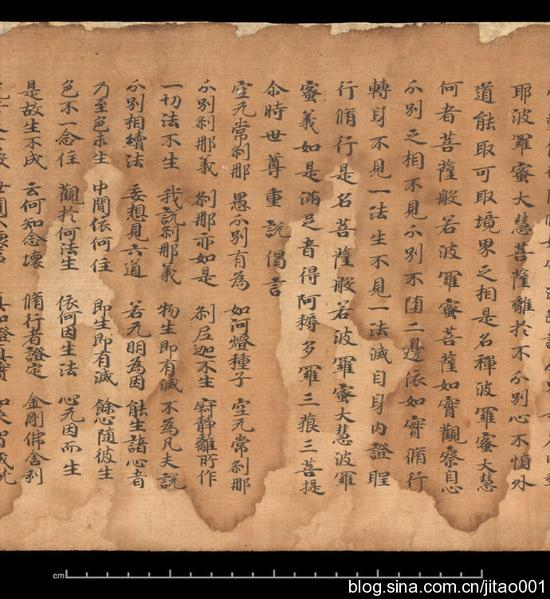 耶波羅蜜大慧菩薩離於不分別心不墮外
道能取可取境界之相是名禪波羅蜜大慧
何者菩薩般若波羅蜜菩薩如實觀察自心
分別之相不見分別不墮二邊依如實脩行
轉身不見一法生不見一法滅自身內證聖
行脩行是名菩薩般若波羅蜜大慧波羅
蜜義如是滿足者得阿耨多羅三藐三菩提
尒時世尊重說偈言
空无常剎那 愚分別有為 如河燈種子 空无常剎那
分別剎那義 剎那亦如是 剎尼迦不生 寂靜離所作
一切法不生 我說剎那義 物生即有滅 不為凡夫說
分別相續法 妄想見六道 若无明為因 能生諸心者
乃至色未生 中間依何住 即生即有滅 餘心隨彼生
色不一念住 觀於何法生 依何因生法 心无因而生
是故生不成 云何知念壞 脩行者證定 金剛佛舍利
cm
blog.sina.com.cn/jitao001